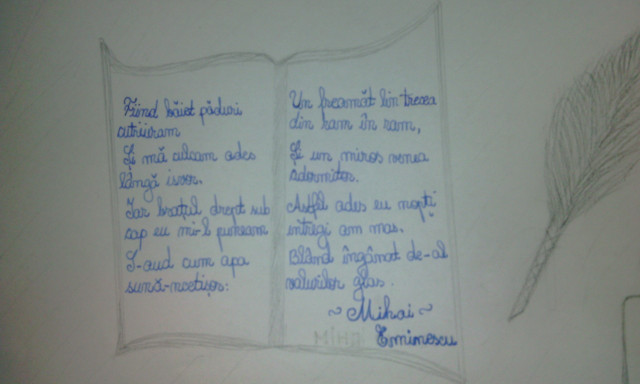 Fiind băiet păduri
cutriieram
Și mă culcam ades
lângă isvor.
Iar brațul drept sub
cap eu mi-l puneam
S-aud cum apa
sună-ncetișor:
Un freamăt lin trecea
din ram în ram,
Și un miros venea
adormitor.
Astfel ades eu nopți
întregi am mas.
Blând îngânat de-al
valurilor glas.
~ Mihai ~
Eminescu